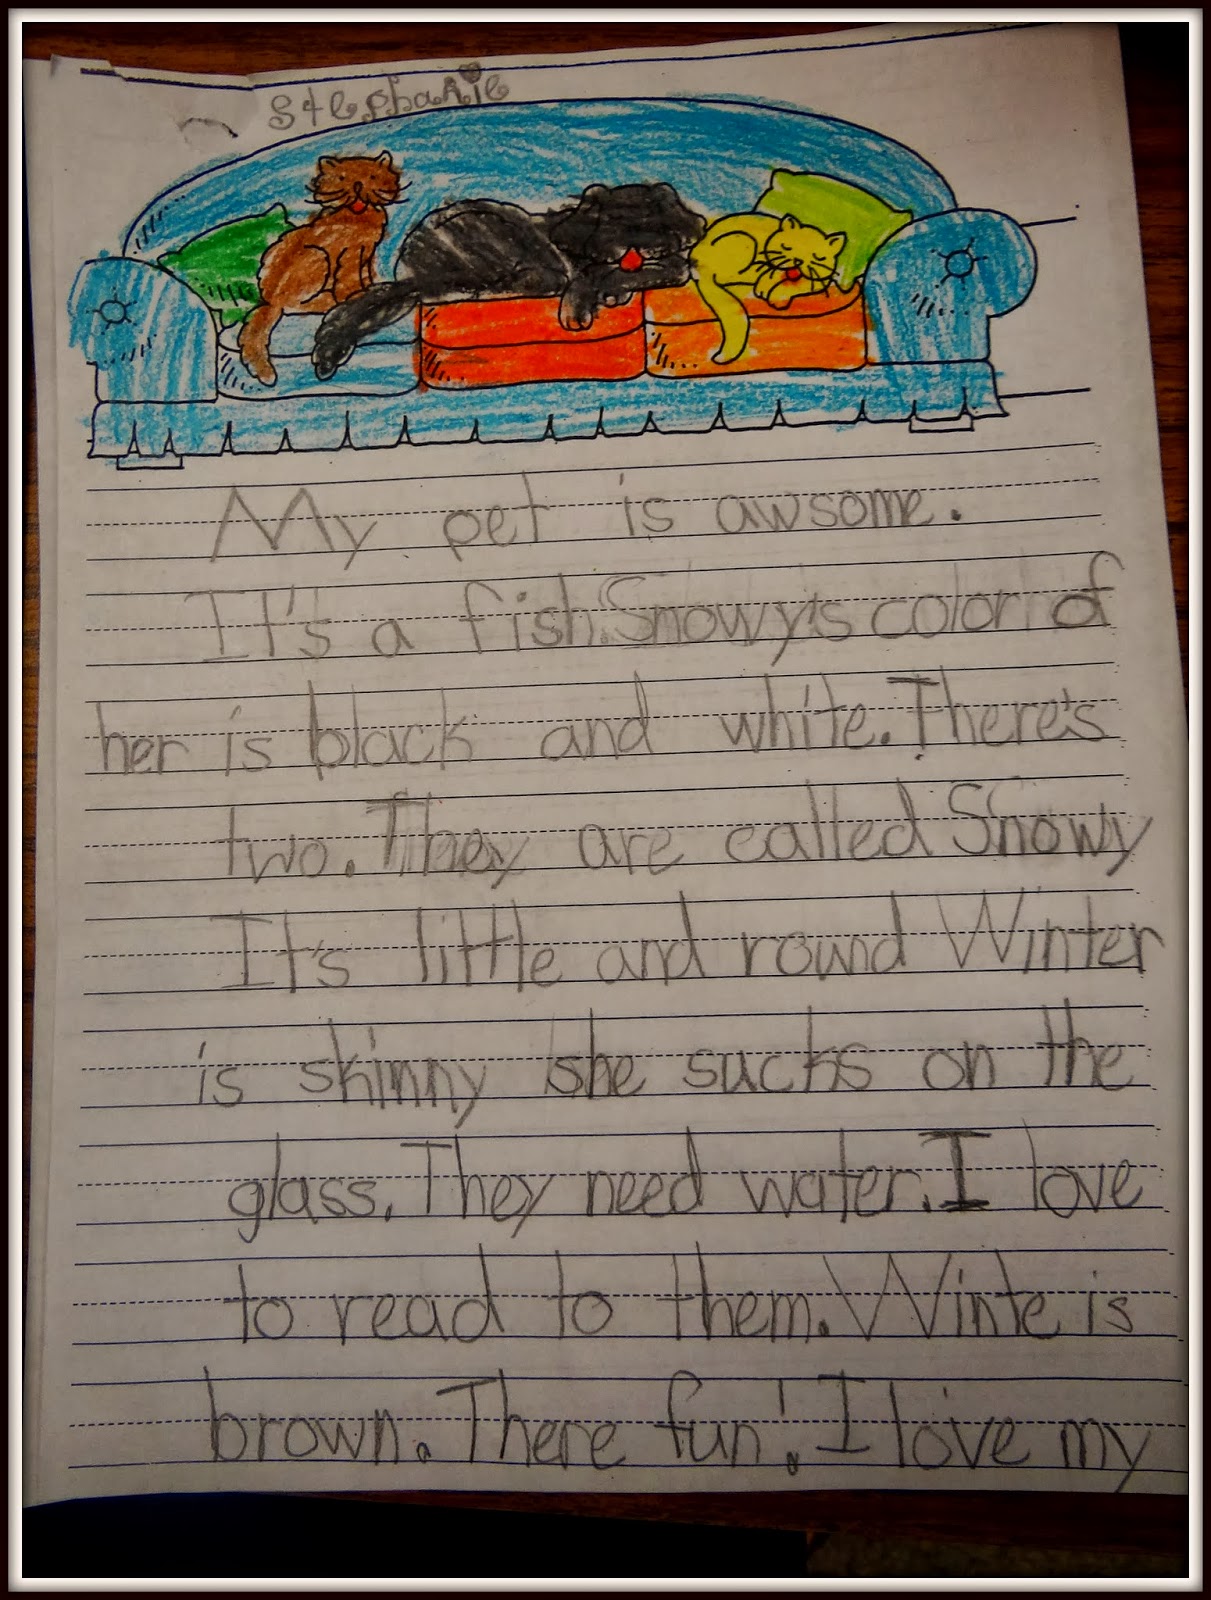 Stephanie
My pet is awsome.
It's a fish. Snowy's color of
her is black and white. There's
two. They are called Snowy
It's little and round Winter
is skinny she sucks on the
glass. They need water. I love
to read to them. Winte is
brown. There fun! I love my